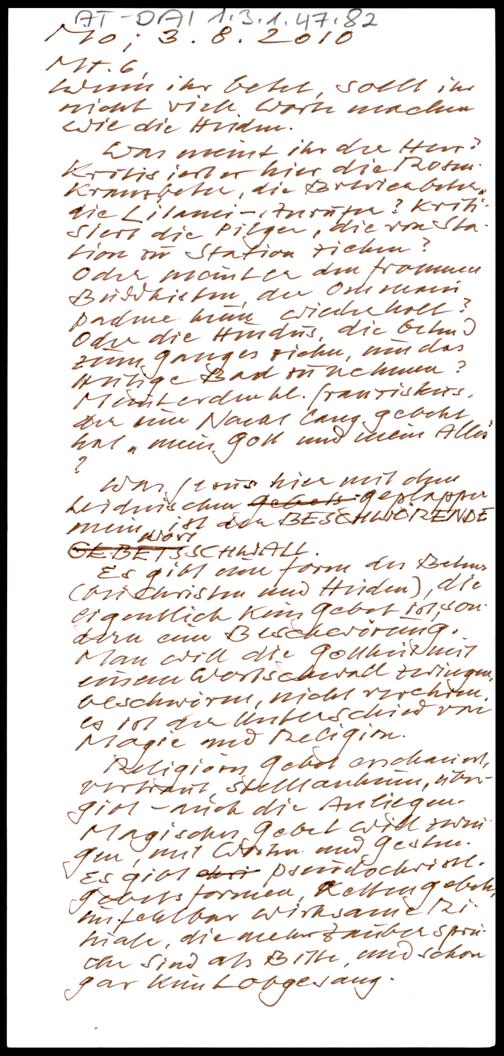 AT-DAI 1.3.1.47.82
Mo, 3.8.2010
Mt. 6,
Wenn ihr betet, sollt ihr
nicht viele Worte machen
wie die Heiden.
Was meint ihr der Herr?
Kritisiert er hier die Rosen-
Kranzbeter, die Brevierbeter,
die Litanei-Zurufe? Kriti-
siert die Pilger, die von Sta-
tion zu Station ziehen?
Oder meint er den frommen
Buddhisten, der Om mani
padme hum wiederholt?
Oder die Hindus, die betend
zum Ganges ziehn, um das
Heilige Bad zu nehmen?
Meinte er den hl. Franziskus,
der eine Nacht lang gebetet
hat "mein Gott und mein Alles"
?
Was Jesus hier mit dem
heidnischen Geplapper
meint, ist der BESCHWÖRENDE
WORTSCHWALL.
Es gibt eine Form des Betens
(bei Christen und Heiden), die
eigentlich kein Gebet ist, son-
dern eine Beschwörung.
Man will die Gottheit mit
einem Wortschwall zwingen,
beschwören, nicht verehren,
es ist der Unterschied von
Magie und Religion.
Religiöses Gebet
vertraut, stellt anheim, über-
gibt - auch die Anliegen.
Magisches Gebet will zwin-
gen, mit Worten und Gesten.
Es gibt pseudochristl.
Gebetsformen, Kettengebete,
unfehlbar wirksame Ri-
tuale, die mehr Zaubersprü-
che sind als Bitte, und schon
gar kein Lobgesang.